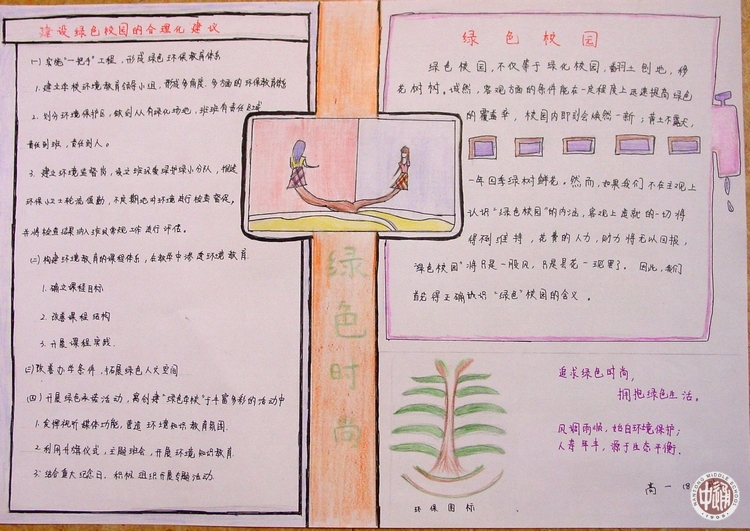 建设绿色校园的合理化建议
(一) 实施"一把手"工程，形成绿色环保教育体系
1. 建立学校环境教育领导小组，形成多角度、多方面的环保教育
2. 划分环境保护区，做到人人有绿化功地，班班有责任区域
责任到班，责任到人。
3. 建立环境监督岗，成立班级爱绿护绿小分队，推选
环保小卫士轮流值勤，不定期地对环境进行检查督促。
并将检查结果纳入班级常规工作进行评估。
(二) 构建环境教育的课程体系，在教学中渗透环境教育.
1. 确立课程目标
2. 改善课程结构
3. 开展课程实践.
(三) 改善办学条件，拓展绿色人文空间
(四) 开展绿色承诺活动，寓创建"绿色学校"于丰富多彩的活动中
1. 发挥视听媒体功能，营造环境知识教育氛围.
2. 利用升旗仪式，主题班会，开展环境知识教育.
3. 结合重大纪念日，积极组织开展专题活动.
绿色时尚
绿色校园
绿色校园，不仅等于绿化校园，翻土刨地，移
花树树。诚然，客观方面的条件能在一定程度上迅速提高绿色
的覆盖率，校园内即刻会焕然一新；黄土不露天，
一年四季绿树鲜花。然而，如果我们不在主观上
认识"绿色校园"的内涵，客观上造就的一切将
得不到维持，花费的人力，财力将无以回报，
"绿色校园"将只是一股风，只是昙花一现罢了。因此，我们
首先得正确认识"绿色"校园的含义。
环保图标
追求绿色时尚，
拥抱绿色生活。
风调雨顺，始自环境保护；
人寿年丰，源于生态平衡.
高一
NANTONG MIDDLE SCHOOL
1909